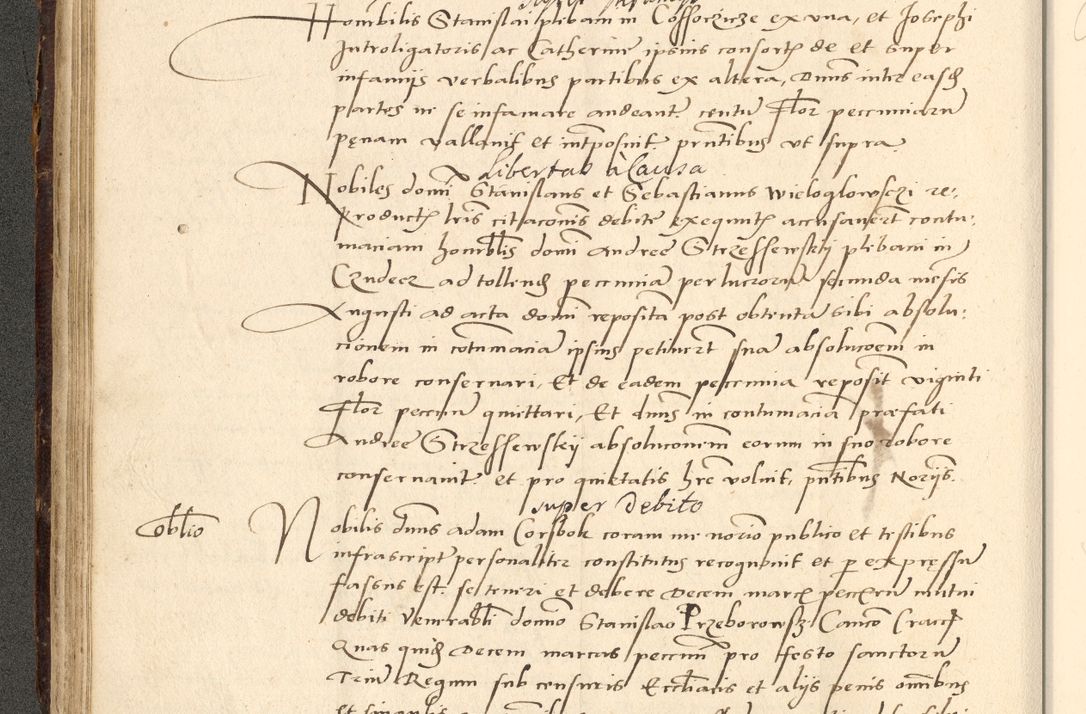 Honorabilis Stanislai plebani in Cossoczicze ex una, et Josephi
Introligatoris ac Catherine ipsius consortis de et super
infamijs verbalibus partibus ex altera, Dnus inter easdem
partes ne se infamare audeant centu Flor pecuniaru
penam vallavit et intposuit. pntibus ut supra
Libertas à Causa
Nobiles domi Stanislaus et Sebastianus Wieloglowsczi re:
producte lris citaconis debite exequute accusaverunt contu:
maciam honorblis domi Andree Strzessewskij plebani in
Czudecz ad tollend pecunia per lucroru secunda mesis
Augusti ad acta domi reposita post obtenta sibi absolu:
cionem in cotumacia ipsius petiverunt sua absolucoem in
robore conservari, Et de eadem peccunia reposit viginti
Flor peccunie quittari, Et dnus in contumacia præfati
Andree Strzessewskij absoluconem eorum in suo robore
conservavit et pro quietatis hre voluit, pntibus Norijs.
super Debito
Oblio
Nobilis dnus Adam Corsbok coram me norio publico et testibus
infrascript personaliter constitutus recognovit et p expressu
fassus est. se teneri et debere Decem marcs peccuru mutui
debiti Venerabli domino Stanislao Przeborowski Canco Cracc
Quas quid Decem marcas peccuni pro festo sanctoru
Triu Regum sub censuris Eccliasticis et alijs penis omibus